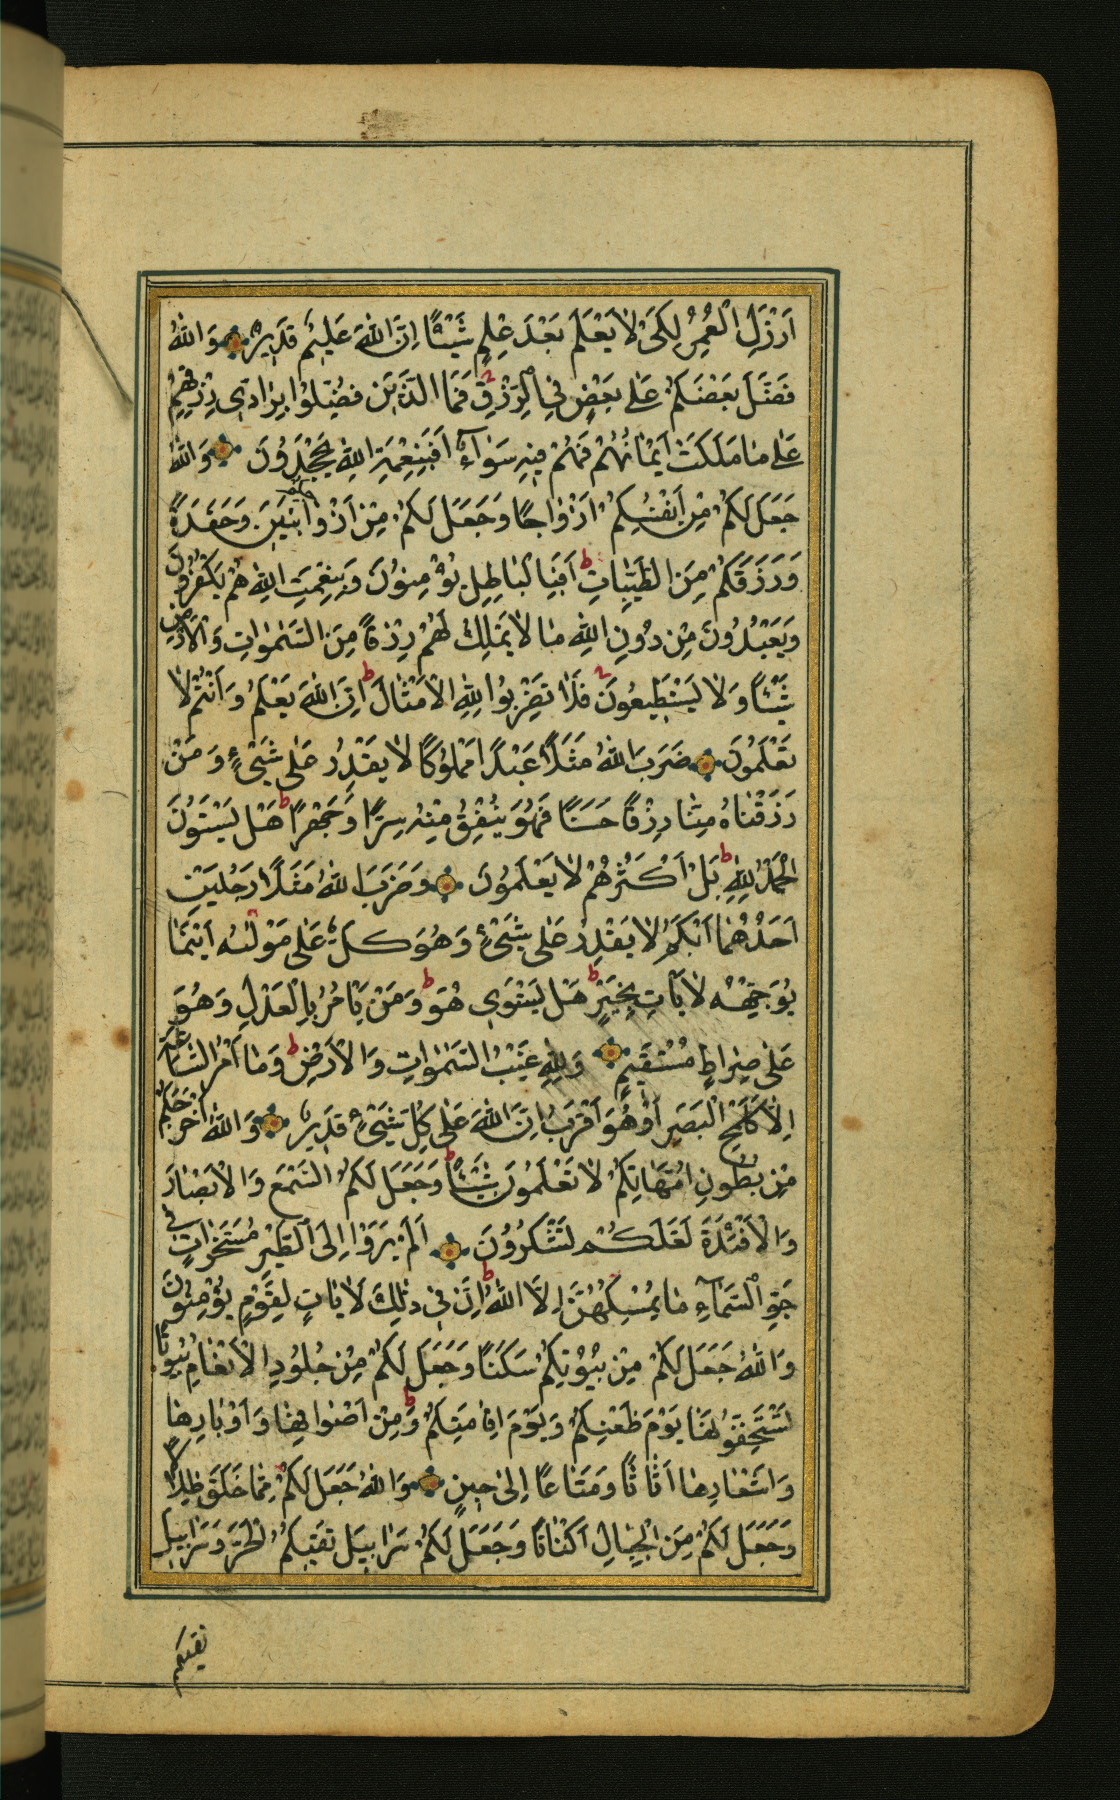 اَرْذَلِ الْعُمُرِ لِكَىْ لَا يَعْلَمَ بَعْدَ عِلْمٍ شَيْئًا اِنَّ اللّٰهَ عَلِيمٌ قَدِيرٌ وَاللّٰهُ
فَضَّلَ بَعْضَكُمْ عَلٰى بَعْضٍ فِى الرِّزْقِ فَمَا الَّذِينَ فُضِّلُوا بِرَادّٖى رِزْقِهِمْ
عَلٰى مَا مَلَكَتْ اَيْمَانُهُمْ فَهُمْ فِيهِ سَوَآءٌ اَفَبِنِعْمَةِ اللّٰهِ يَجْحَدُونَ وَاللّٰهُ
جَعَلَ لَكُمْ مِنْ اَنْفُسِكُمْ اَزْوَاجًا وَجَعَلَ لَكُمْ مِنْ اَزْوَاجِكُمْ بَنِينَ وَحَفَدَةً
وَرَزَقَكُمْ مِنَ الطَّيِّبَاتِ اَفَبِالْبَاطِلِ يُؤْمِنُونَ وَبِنِعْمَتِ اللّٰهِ هُمْ يَكْفُرُونَ
وَيَعْبُدُونَ مِنْ دُونِ اللّٰهِ مَا لَا يَمْلِكُ لَهُمْ رِزْقًا مِنَ السَّمٰوَاتِ وَالْاَرْضِ
شَيْئًا وَلَا يَسْتَطِيعُونَ فَلَا تَضْرِبُوا لِلّٰهِ الْاَمْثَالَ اِنَّ اللّٰهَ يَعْلَمُ وَاَنْتُمْ لَا
تَعْلَمُونَ ضَرَبَ اللّٰهُ مَثَلًا عَبْدًا مَمْلُوكًا لَا يَقْدِرُ عَلٰى شَىْءٍ وَمَنْ
رَزَقْنَاهُ مِنَّا رِزْقًا حَسَنًا فَهُوَ يُنْفِقُ مِنْهُ سِرًّا وَجَهْرًا هَلْ يَسْتَوُنَ
اَلْحَمْدُ لِلّٰهِ بَلْ اَكْثَرُهُمْ لَا يَعْلَمُونَ وَضَرَبَ اللّٰهُ مَثَلًا رَجُلَيْنِ
اَحَدُهُمَا اَبْكَمُ لَا يَقْدِرُ عَلٰى شَىْءٍ وَهُوَ كَلٌّ عَلٰى مَوْلٰيهُ اَيْنَمَا
يُوَجِّهْهُ لَا يَأْتِ بِخَيْرٍ هَلْ يَسْتَوِى هُوَ وَمَنْ يَأْمُرُ بِالْعَدْلِ وَهُوَ
عَلٰى صِرَاطٍ مُسْتَقِيمٍ وَلِلّٰهِ غَيْبُ السَّمٰوَاتِ وَالْاَرْضِ وَمَا اَمْرُ السَّاعَةِ
اِلَّا كَلَمْحِ الْبَصَرِ اَوْ هُوَ اَقْرَبُ اِنَّ اللّٰهَ عَلٰى كُلِّ شَىْءٍ قَدِيرٌ وَاللّٰهُ اَخْرَجَكُمْ
مِنْ بُطُونِ اُمَّهَاتِكُمْ لَا تَعْلَمُونَ شَيْئًا وَجَعَلَ لَكُمُ السَّمْعَ وَالْاَبْصَارَ
وَالْاَفْئِدَةَ لَعَلَّكُمْ تَشْكُرُونَ اَلَمْ يَرَوْا اِلَى الطَّيْرِ مُسَخَّرَاتٍ فِى
جَوِّ السَّمَآءِ مَا يُمْسِكُهُنَّ اِلَّا اللّٰهُ اِنَّ فِى ذٰلِكَ لَاٰيَاتٍ لِقَوْمٍ يُؤْمِنُونَ
وَاللّٰهُ جَعَلَ لَكُمْ مِنْ بُيُوتِكُمْ سَكَنًا وَجَعَلَ لَكُمْ مِنْ جُلُودِ الْاَنْعَامِ بُيُوتًا
تَسْتَخِفُّونَهَا يَوْمَ ظَعْنِكُمْ وَيَوْمَ اِقَامَتِكُمْ وَمِنْ اَصْوَافِهَا وَاَوْبَارِهَا
وَاَشْعَارِهَا اَثَاثًا وَمَتَاعًا اِلٰى حِينٍ وَاللّٰهُ جَعَلَ لَكُمْ مِمَّا خَلَقَ ظِلَالًا
وَجَعَلَ لَكُمْ مِنَ الْجِبَالِ اَكْنَانًا وَجَعَلَ لَكُمْ سَرَابِيلَ تَقِيكُمُ الْحَرَّ وَسَرَابِيلَ
تقيكم